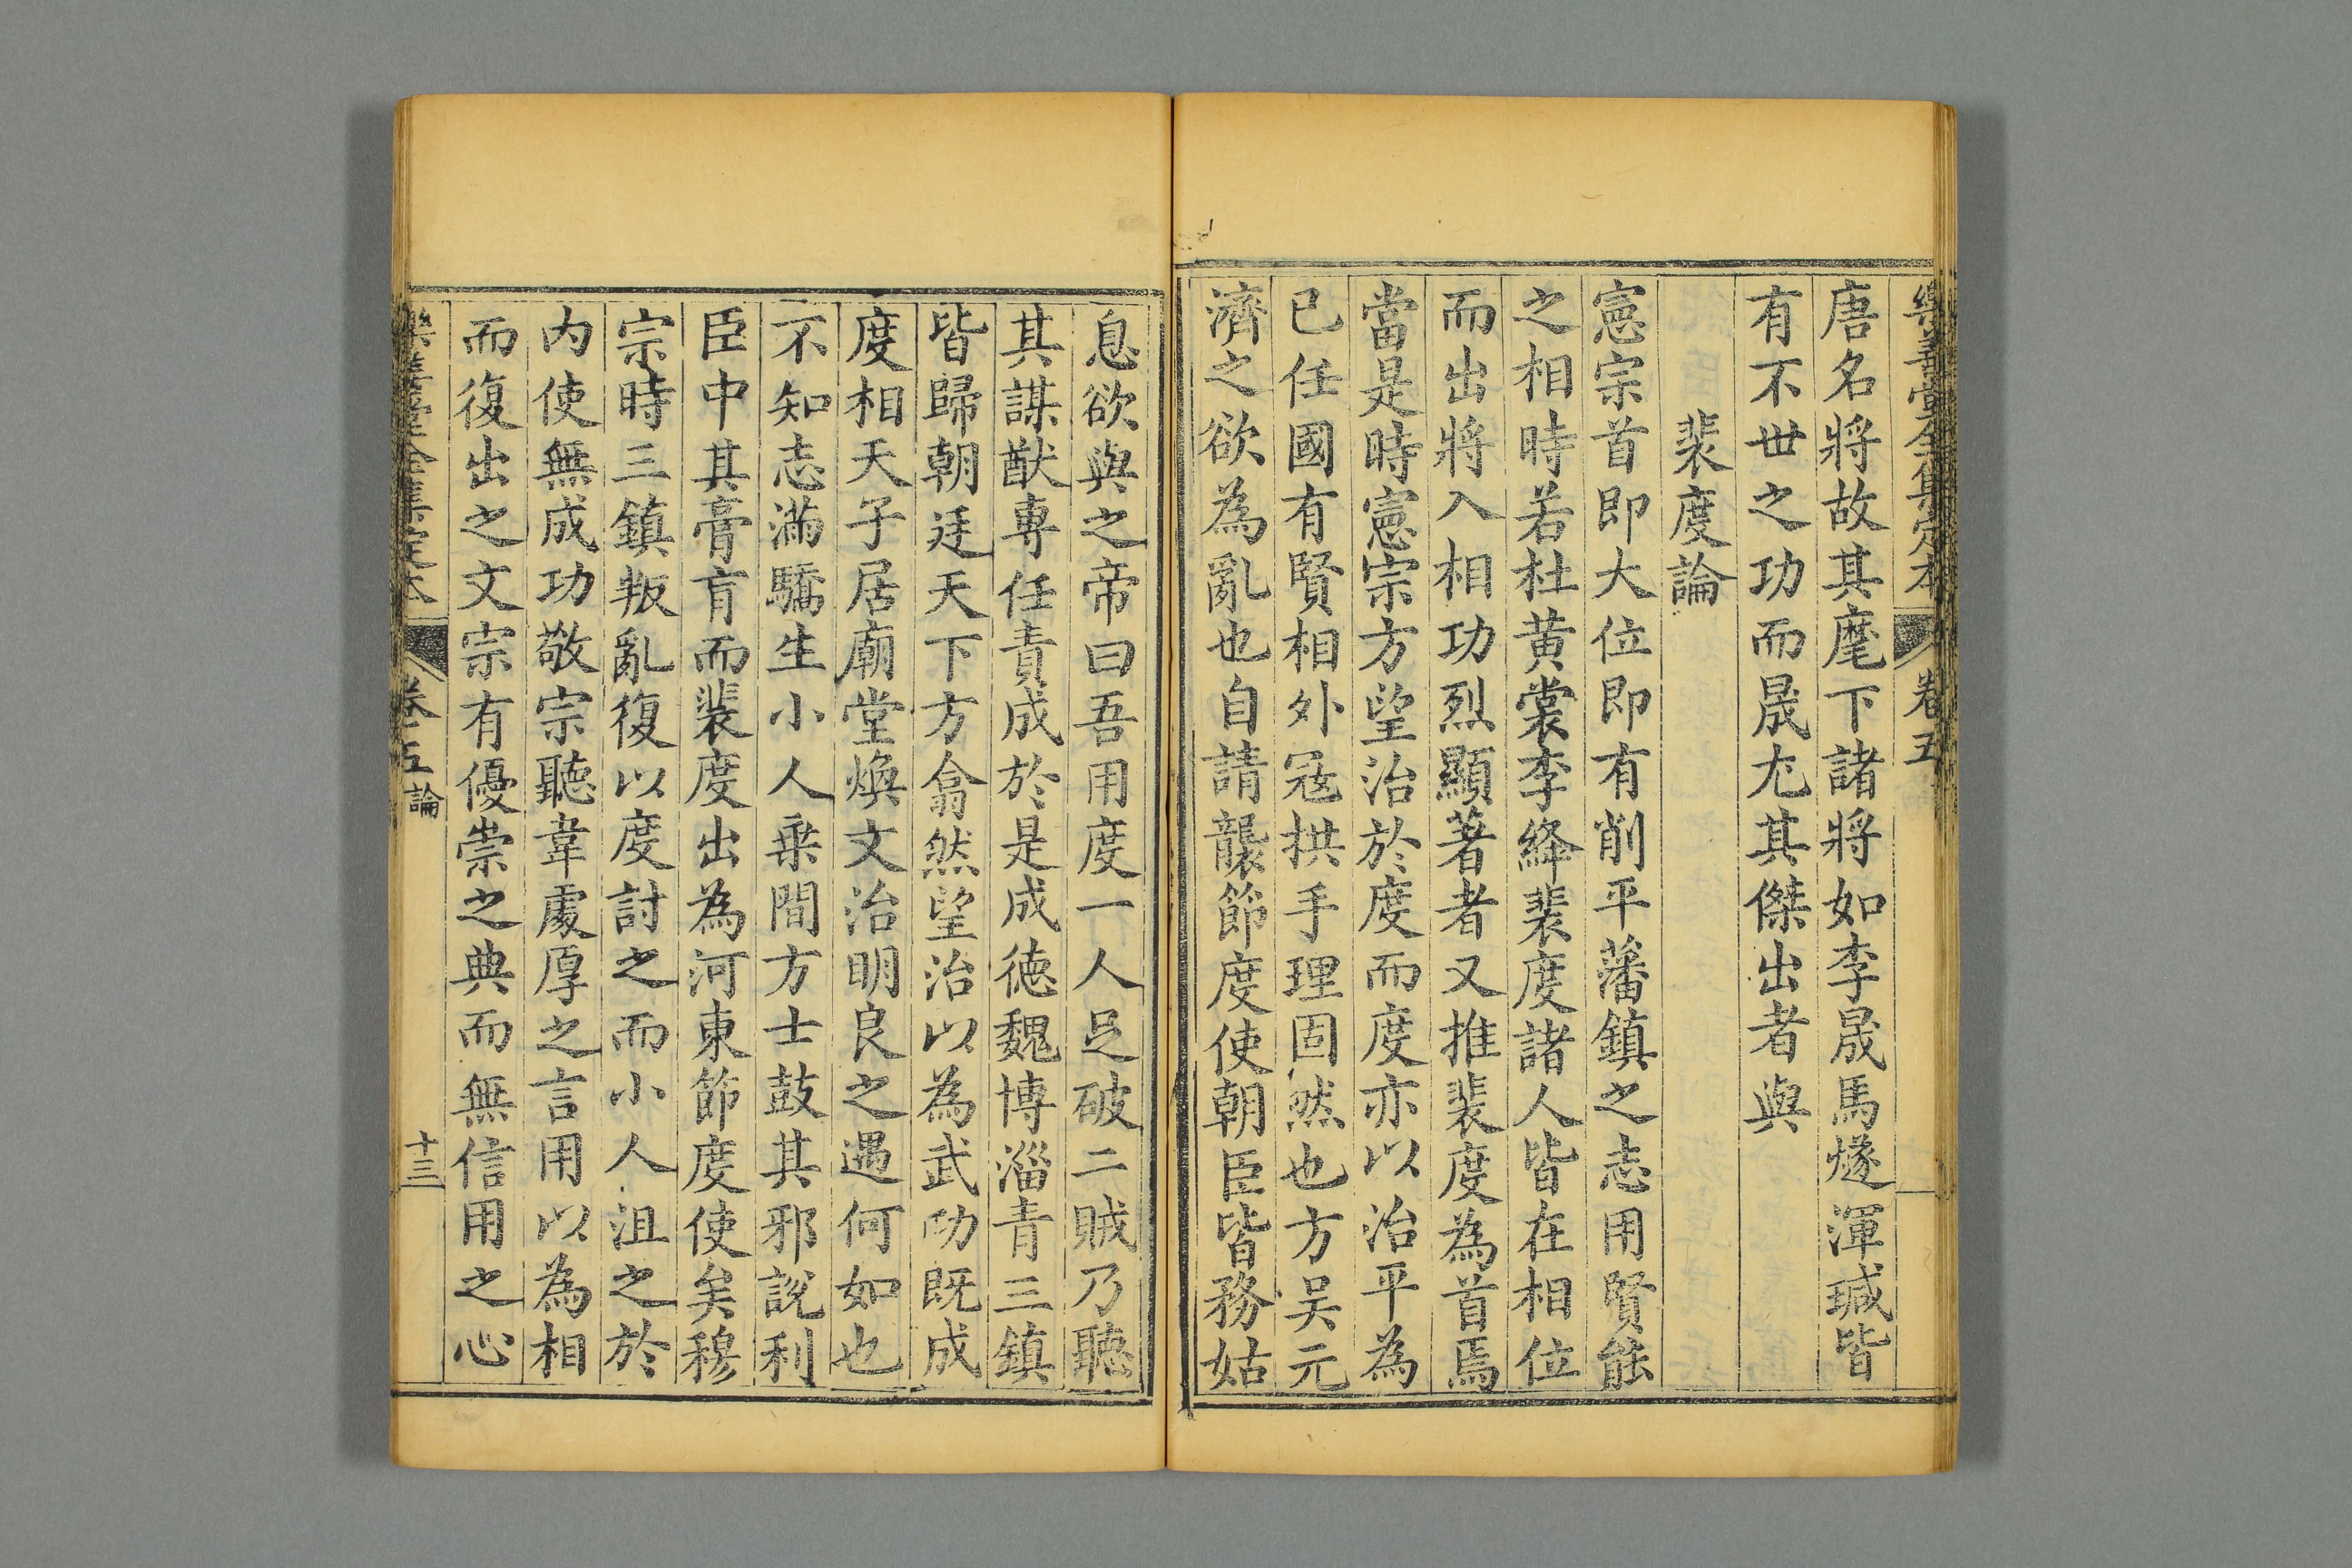 樂善堂全集定本 卷五
唐名將故其麾下諸將如李晟馬燧渾瑊皆
有不世之功而晟尤其傑出者與
裴度論
憲宗首即大位即有削平藩鎮之志用賢能
之相時若杜黄裳李絳裴度諸人皆在相位
而出將入相功烈顯著者又推裴度為首焉
當是時憲宗方望治於度而度亦以治平為
已任國有賢相外冦拱手理固然也方吴元
濟之欲為亂也自請襲節度使朝臣皆務姑
息欲與之帝曰吾用度一人足破二賊乃聽
其謀猷專任責成於是成德魏博淄青三鎮
皆歸朝廷天下方翕然望治以為武功既成
度相天子居廟堂煥文治明良之遇何如也
不知志滿驕生小人乗間方士鼓其邪説利
臣中其膏肓而裴度出為河東節度使矣穆
宗時三鎮叛亂復以度討之而小人沮之於
内使無成功敬宗聽韋處厚之言用以為相
而復出之文宗有優崇之典而無信用之心
樂善堂全集定本 卷五 論 十三